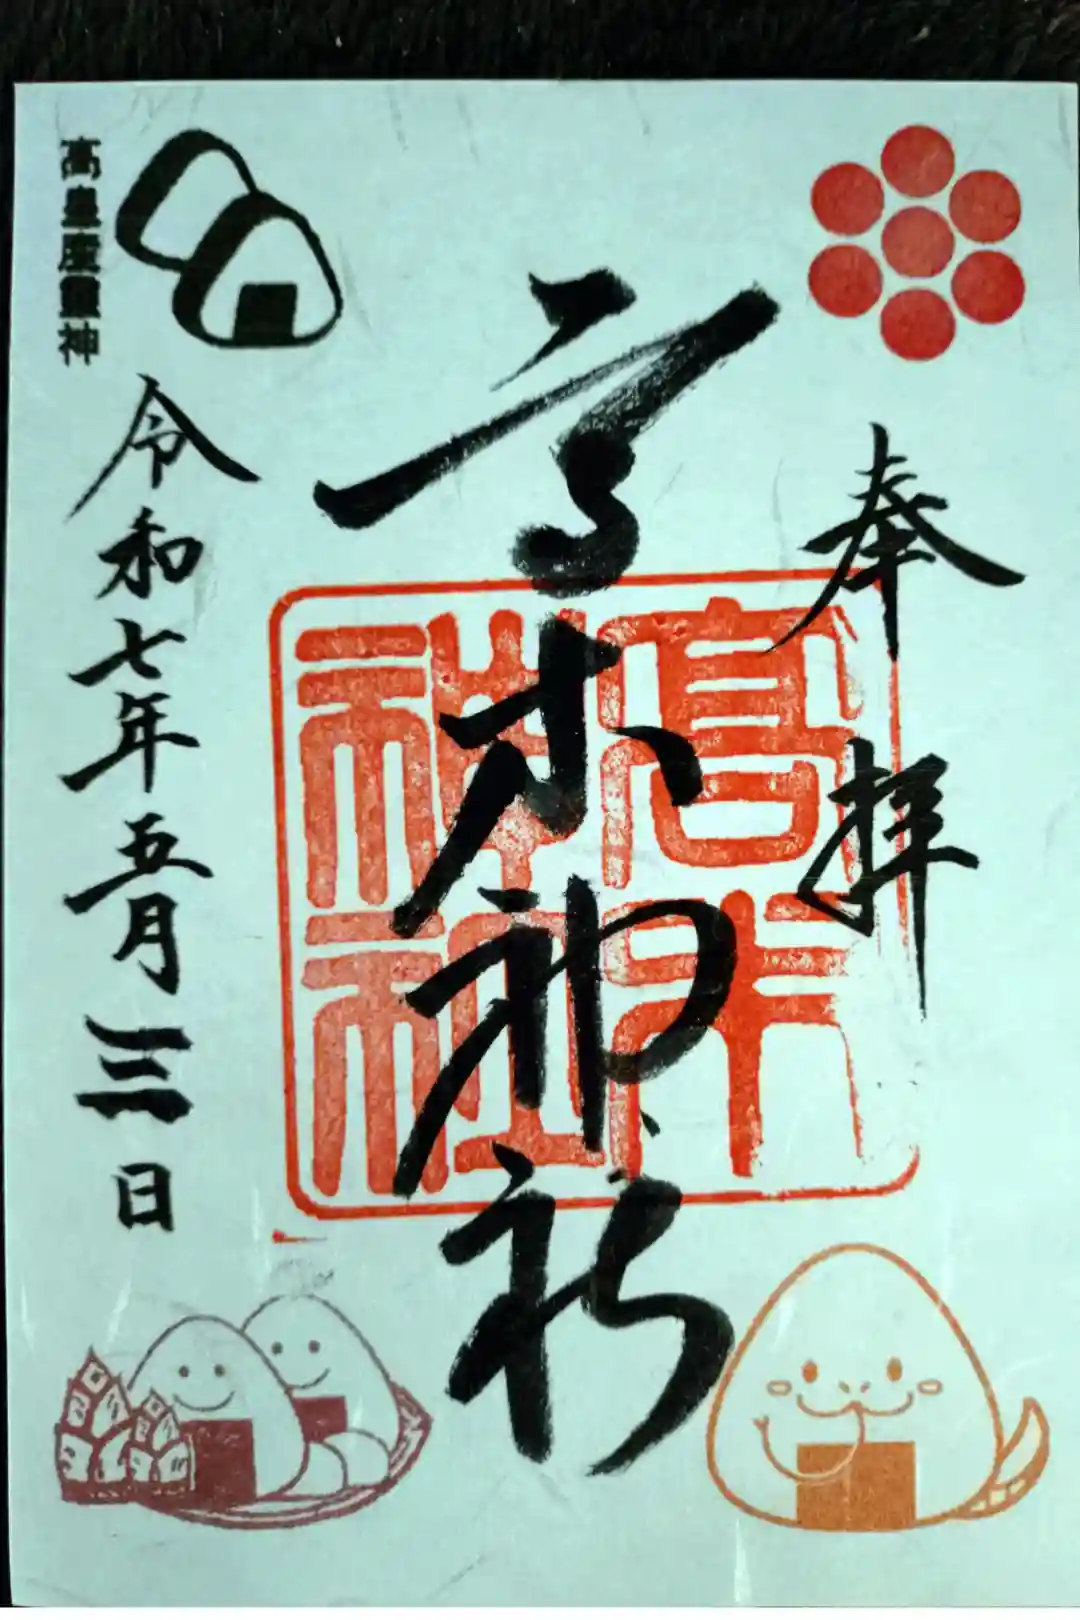 奉拝
高木神社
高木神社
令和七年五月三日
高皇産霊神